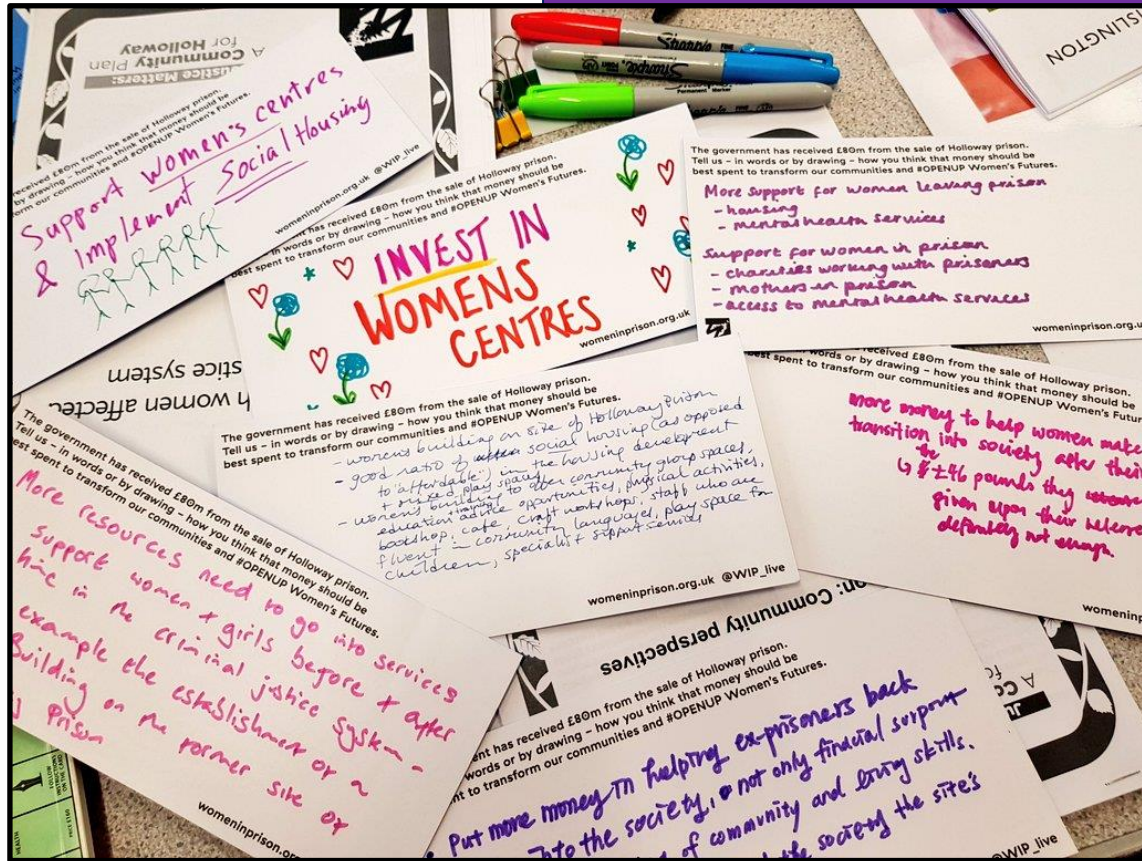 A Community Plan
for Holloway
Justice Matters:
received £80m from the sale of Holloway prison.
by drawing – how you think that money should be
form our communities and #OPENUP Women's Futures.
Support women's centres
& Implement Social Housing
womeninprison.org.uk @WIP_live
Sharpie
Permanent Marker
SLINGTON
nt has received £80m from the sale of Holloway prison.
in words or by drawing – how you think that money should be
best spent to transform our communities and #OPENUP Women's Futures.
INVEST IN
WOMENS
CENTRES
womeninprison.org.uk
The government has received £80m from the sale of Holloway prison.
Tell us – in words or by drawing – how you think that money should be
best spent to transform our communities and #OPENUP Women's Futures.
More support for women leaving prison
- housing
- mental health services
Support for women in prison
- charities working with prisoners
- mothers in prison
- access to mental health services
womeninprison.org.uk
h women affected
stice system
The government has received £80m from the sale of Holloway prison.
Tell us – in words or by drawing – how you think that money should be
best spent to transform our communities and #OPENUP Women's Futures.
- womens building on site of Holloway Prison
- good ratio of social housing (as opposed
to "affordable") in the housing development
+ mixed play spaces
- womens building to offer community group spaces,
education + training advice opportunities, physical activities,
bookshop, cafe, craft workshops, staff who are
fluent in community languages, play space for
children, specialist support services
womeninprison.org.uk @WIP_live
received £80m from the sale of Holloway prison.
words or by drawing – how you think that money should be
est spent to transform our communities and #OPENUP Women's Futu
more money to help women make
transition into society after their
£46 pounds they
given upon their release
definitely not enough.
womeninp
The government has received £80m from the sale of Holloway prison.
Tell us – in words or by drawing – how you think that money should be
best spent to transform our communities and #OPENUP Women's Futures.
More resources need to go into services
support women & girls before & after
time in the criminal justice system -
example the establishment of a
Building on the former site of
prison
womeninprison.or
on: Community perspectives
ent has received £80m from the sale of Holloway prison.
words or by drawing – how you think that money should be
nt to transform our communities and #OPENUP Women's Futures.
Put more money in helping ex-prisoners back
into the society, not only finacial support
of community and living skills.
the society the site's
@WIP_live
FOLLOW
INSTRUCTIONS
ON THE CARD
HEALTH